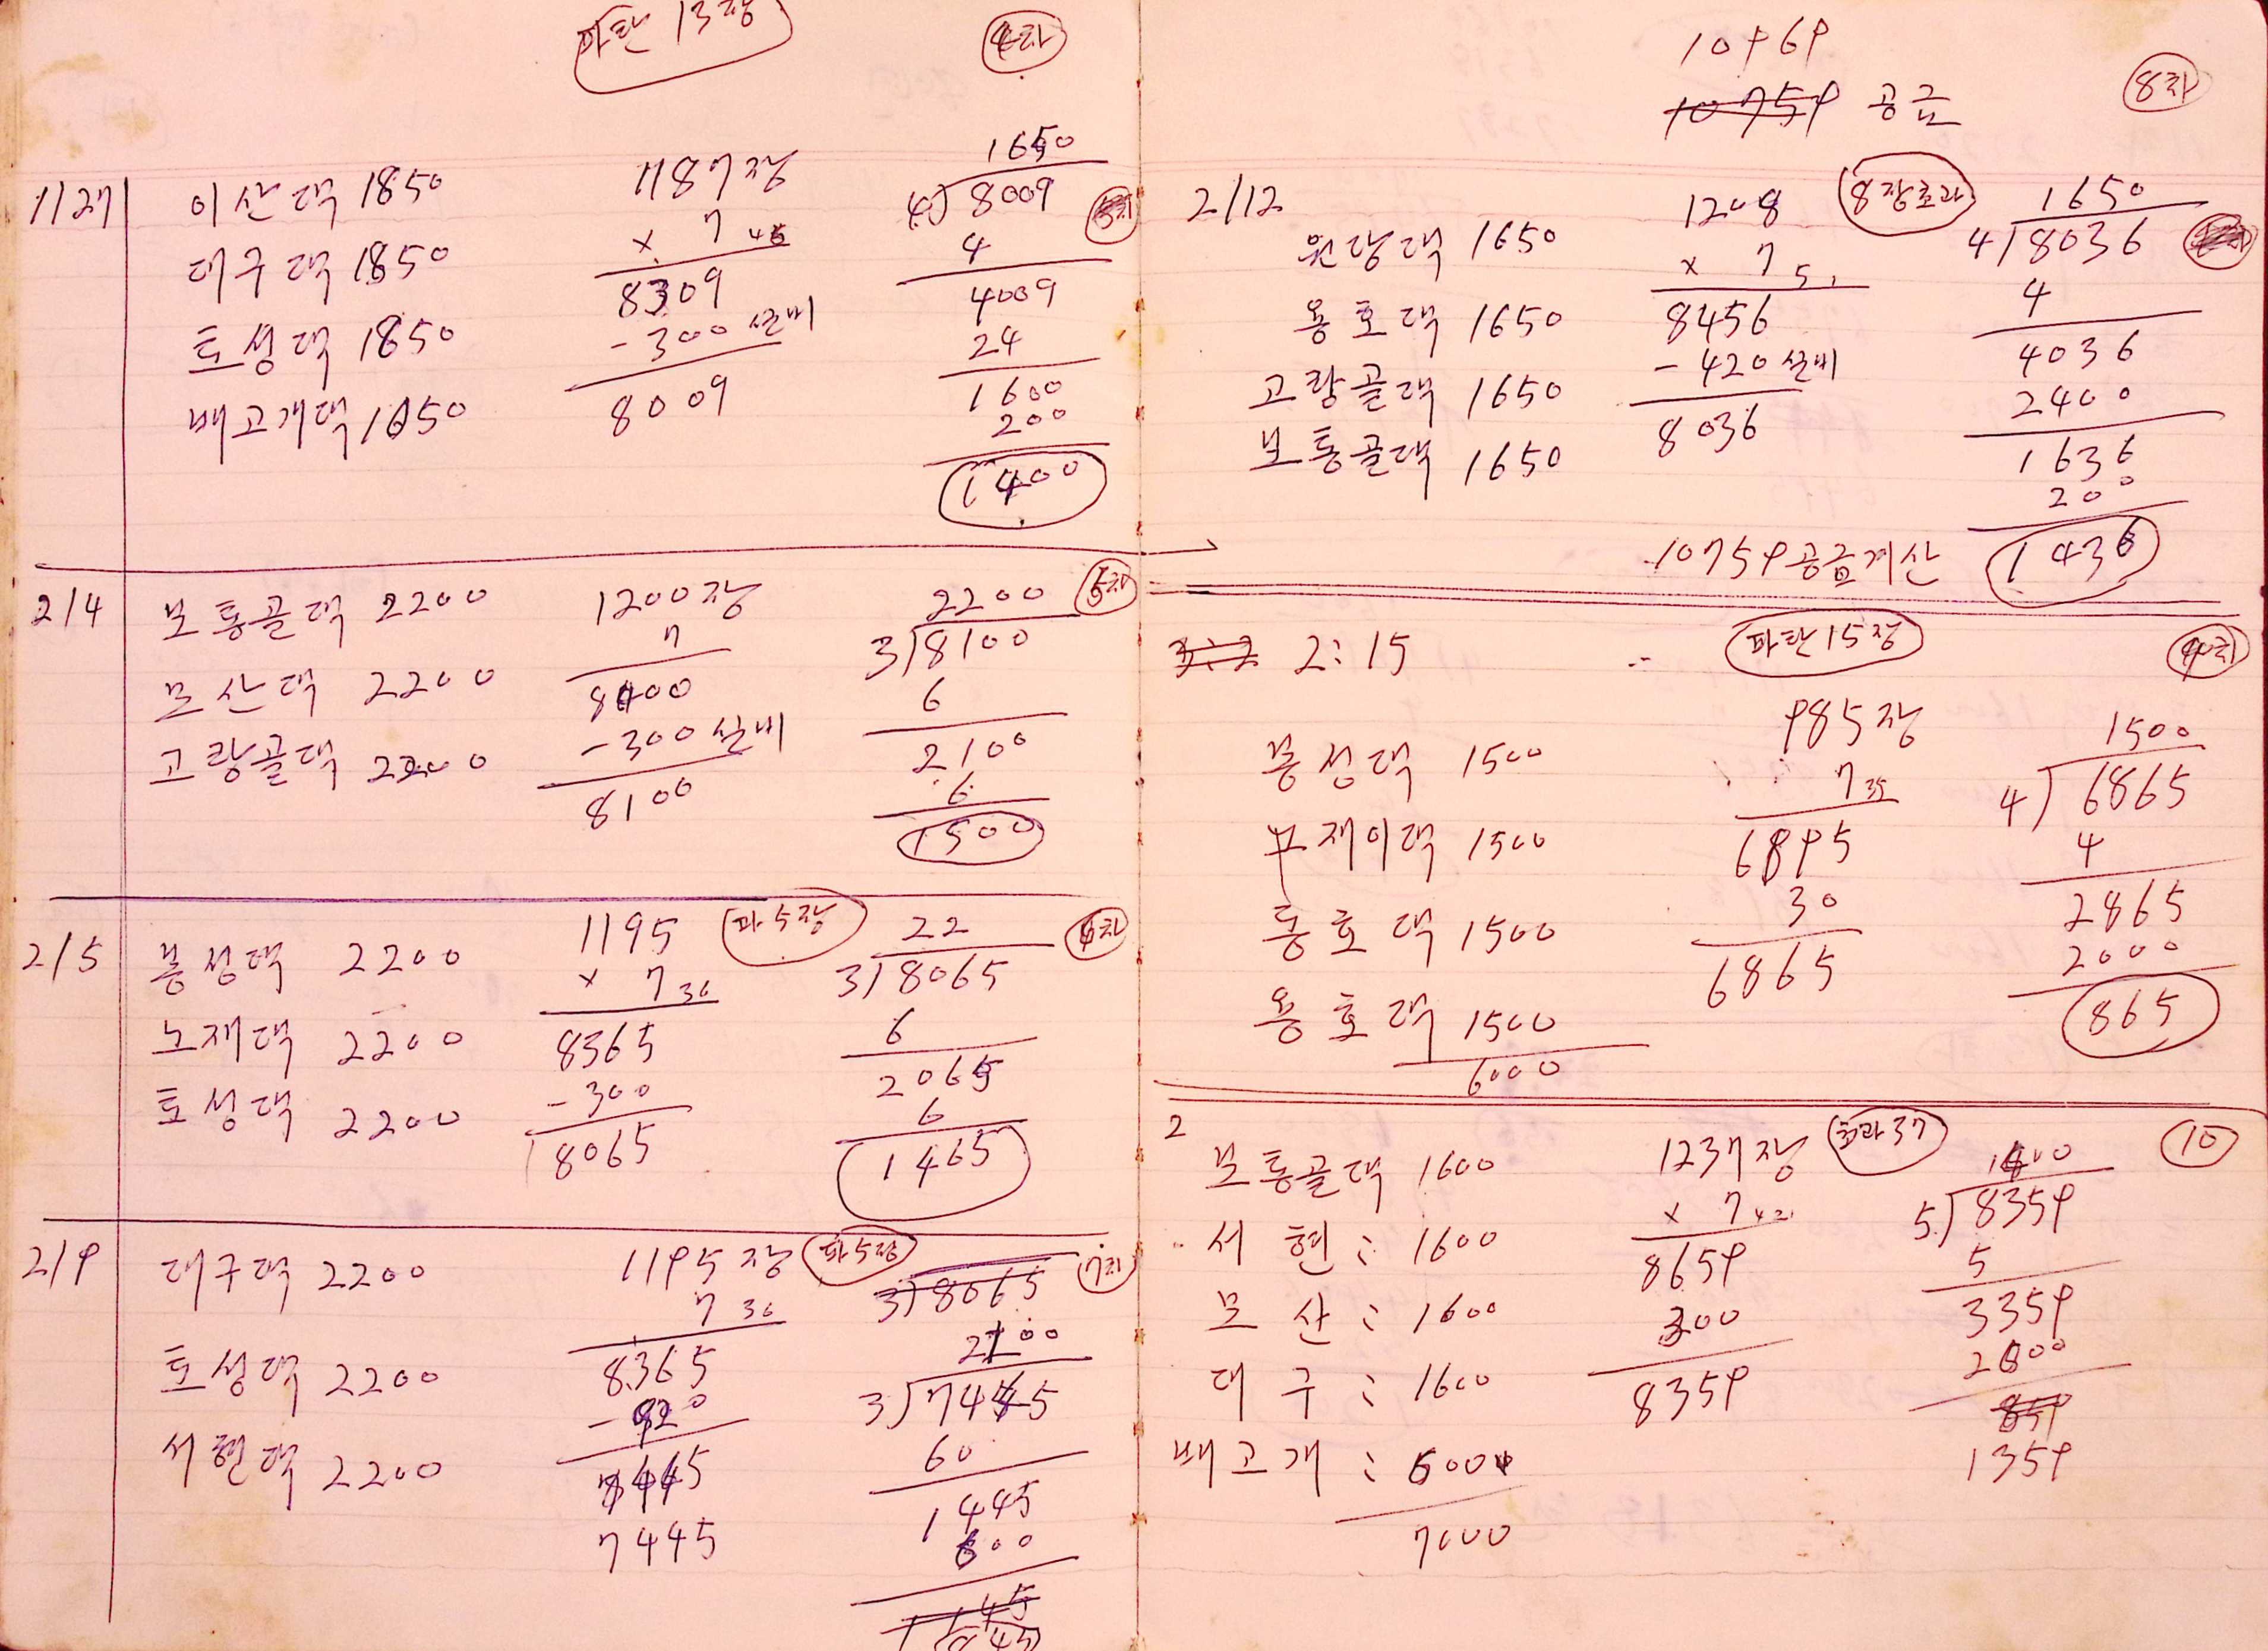 파탄 13장
4차
1/27
이산댁 1850
대구댁 1850
토성댁 1850
배고개댁 1650
1187장
× 7
8309
-300 실비
8009
1650
4)8009
4
4009
24
1600
200
1400
2/4
보통골댁 2200
모산댁 2200
고랑골댁 2200
1200장
7
8400
-300 실비
8100
5차
2200
3)8100
6
2100
6
1500
2/5
봉성댁 2200
노재댁 2200
토성댁 2200
1195
× 7 36
8365
-300
8065
파5장
6차
22
3)8065
6
2065
6
1465
2/9
대구댁 2200
토성댁 2200
서현댁 2200
1195장
7 36
8365
-920
7445
7445
파5장
7차
3)8065
3)7445
60
1445
600
10969
10759 공급
8차
2/12
원당댁 1650
용호댁 1650
고랑골댁 1650
보통골댁 1650
1208
× 7 5
8456
-420 실비
8036
8장초과
1650
4)8036
4
4036
2400
1636
200
1436
10759공급계산
2:15
파탄15장
봉성댁 1500
1500
동호댁 1500
용호댁 1500
6000
985장
7 35
6895
30
6865
1500
4)6865
4
2865
2000
865
2
보통골댁 1600
서현: 1600
모산: 1600
대구: 1600
배고개:
7000
1237장
× 7 42
8659
300
8359
초과37
10
5)8359
5
3359
2000
859
1359